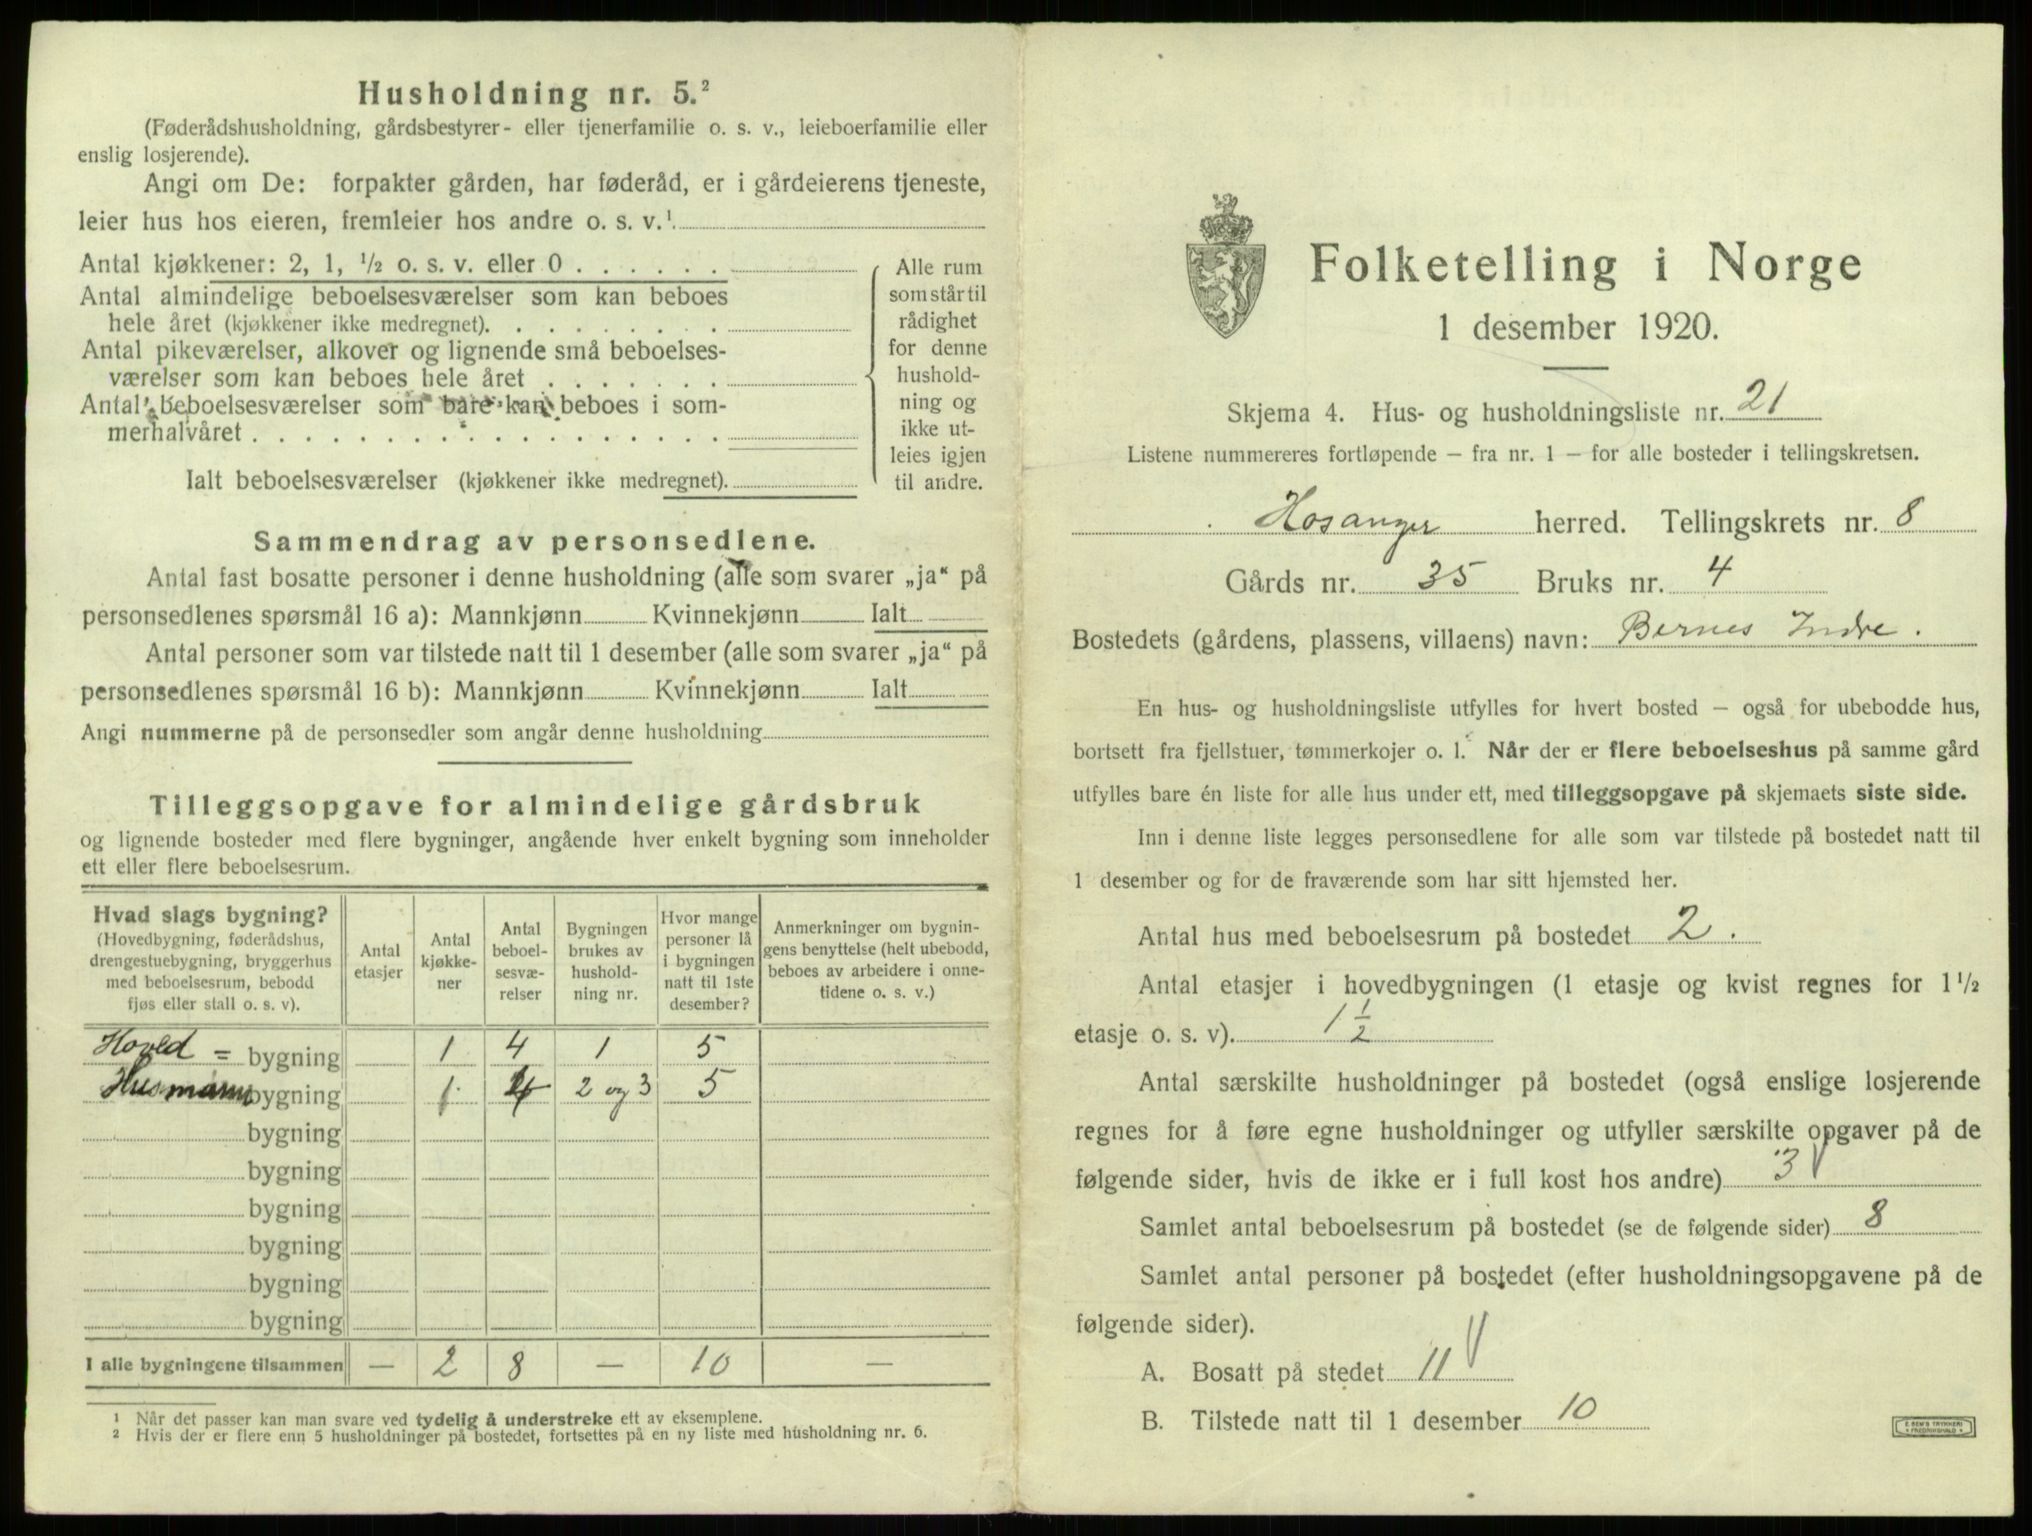 Husholdning nr. 5.²
(Føderådshusholdning, gårdsbestyrer- eller tjenerfamilie o. s. v., leieboerfamilie eller
enslig losjerende).
Angi om De: forpakter gården, har føderåd, er i gårdeierens tjeneste,
leier hus hos eieren, fremleier hos andre o. s. v.¹
Antal kjøkkener: 2, 1, ½ o. s. v. eller 0 . . . . . .
Antal almindelige beboelsesværelser som kan beboes
hele året (kjøkkener ikke medregnet). . . . . . . . .
Antal pikeværelser, alkover og lignende små beboelses-
værelser som kan beboes hele året . . . . . . .
Antal beboelsesværelser som bare kan beboes i som-
merhalvåret . . . . . . . . . . . . . . . . . .
Ialt beboelsesværelser (kjøkkener ikke medregnet).
Alle rum
som står til
rådighet
for denne
hushold-
ning og
ikke ut-
leies igjen
til andre.
Sammendrag av personsedlene.
Antal fast bosatte personer i denne husholdning (alle som svarer „ja“ på
personsedlenes spørsmål 16 a): Mannkjønn Kvinnekjønn Ialt
Antal personer som var tilstede natt til 1 desember (alle som svarer „ja“ på
personsedlenes spørsmål 16 b): Mannkjønn Kvinnekjønn Ialt
Angi nummerne på de personsedler som angår denne husholdning
Tilleggsopgave for almindelige gårdsbruk
og lignende bosteder med flere bygninger, angående hver enkelt bygning som inneholder
ett eller flere beboelsesrum.
Hvad slags bygning?
(Hovedbygning, føderådshus,
drengestuebygning, bryggerhus
med beboelsesrum, bebodd
fjøs eller stall o. s. v).
Antal
etasjer
Antal
kjøkke-
ner
Antal
beboel-
sesvæ-
relser
Bygningen
brukes av
hushold-
ning nr.
Hvor mange
personer lå
i bygningen
natt til 1ste
desember?
Anmerkninger om bygnin-
gens benyttelse (helt ubebodd,
beboes av arbeidere i onne-
tidene o. s. v.)
Hoved = bygning 1 4 1 5
Husmanns bygning 1 4 2 og 3 5
bygning
bygning
bygning
bygning
bygning
bygning
I alle bygningene tilsammen — 2 8 — 10 —
¹ Når det passer kan man svare ved tydelig å understreke ett av eksemplene.
² Hvis der er flere enn 5 husholdninger på bostedet, fortsettes på en ny liste med husholdning nr. 6.
Folketelling i Norge
1 desember 1920.
Skjema 4. Hus- og husholdningsliste nr. 21
Listene nummereres fortløpende — fra nr. 1 — for alle bosteder i tellingskretsen.
Hosanger herred. Tellingskrets nr. 8
Gårds nr. 35 Bruks nr. 4
Bostedets (gårdens, plassens, villaens) navn: Bernes Indre.
En hus- og husholdningsliste utfylles for hvert bosted — også for ubebodde hus,
bortsett fra fjellstuer, tømmerkojer o. l. Når der er flere beboelseshus på samme gård
utfylles bare én liste for alle hus under ett, med tilleggsopgave på skjemaets siste side.
Inn i denne liste legges personsedlene for alle som var tilstede på bostedet natt til
1 desember og for de fraværende som har sitt hjemsted her.
Antal hus med beboelsesrum på bostedet 2.
Antal etasjer i hovedbygningen (1 etasje og kvist regnes for 1½
etasje o. s. v). 1½
Antal særskilte husholdninger på bostedet (også enslige losjerende
regnes for å føre egne husholdninger og utfyller særskilte opgaver på de
følgende sider, hvis de ikke er i full kost hos andre) 3
Samlet antal beboelsesrum på bostedet (se de følgende sider) 8
Samlet antal personer på bostedet (efter husholdningsopgavene på de
følgende sider).
A. Bosatt på stedet 11
B. Tilstede natt til 1 desember 10